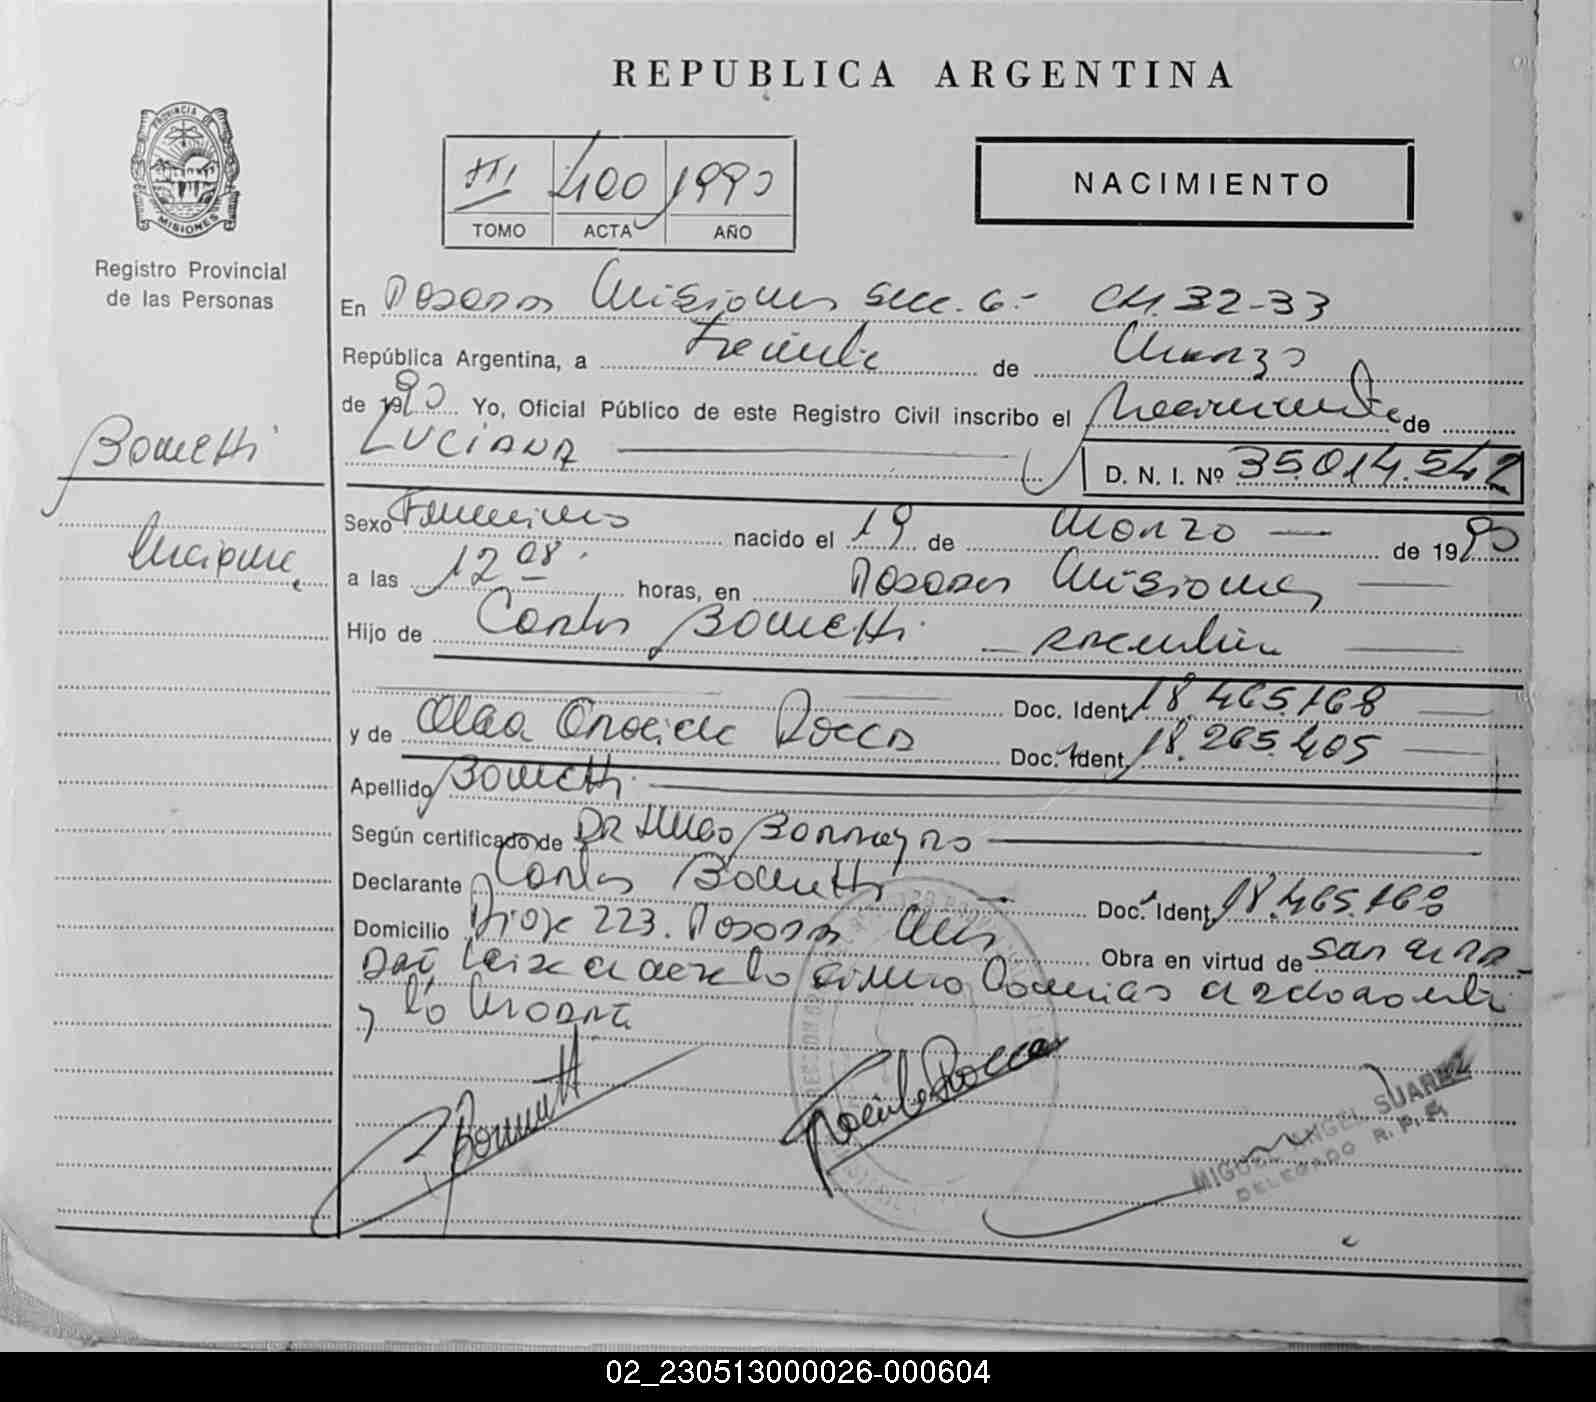 REPUBLICA ARGENTINA
PROVINCIA DE
MISIONES
Registro Provincial
de las Personas
III 400 1990
TOMO ACTA AÑO
NACIMIENTO
En Posadas Misiones Secc. 6.- CH. 32-33
República Argentina, a Treinta de Marzo
de 1990 Yo, Oficial Público de este Registro Civil inscribo el Nacimiento de
LUCIANA
D. N. I. Nº 35.014.542
Bonetti
Luciana
Sexo Femenino nacido el 19 de Marzo de 1990
a las 12 08 horas, en Posadas Misiones
Hijo de Carlos Bonetti
Doc. Ident. 18.465.168
y de Olga Graciela Rocca Doc. Ident. 18.265.405
Apellido Bonetti
Según certificado de DR Hugo
Declarante Carlos Bonetti Doc. Ident. 18.465.168
Domicilio 223. Posadas Mis Obra en virtud de
MIGUEL ANGEL SUAREZ
DELEGADO R. P. P.
02_230513000026-000604